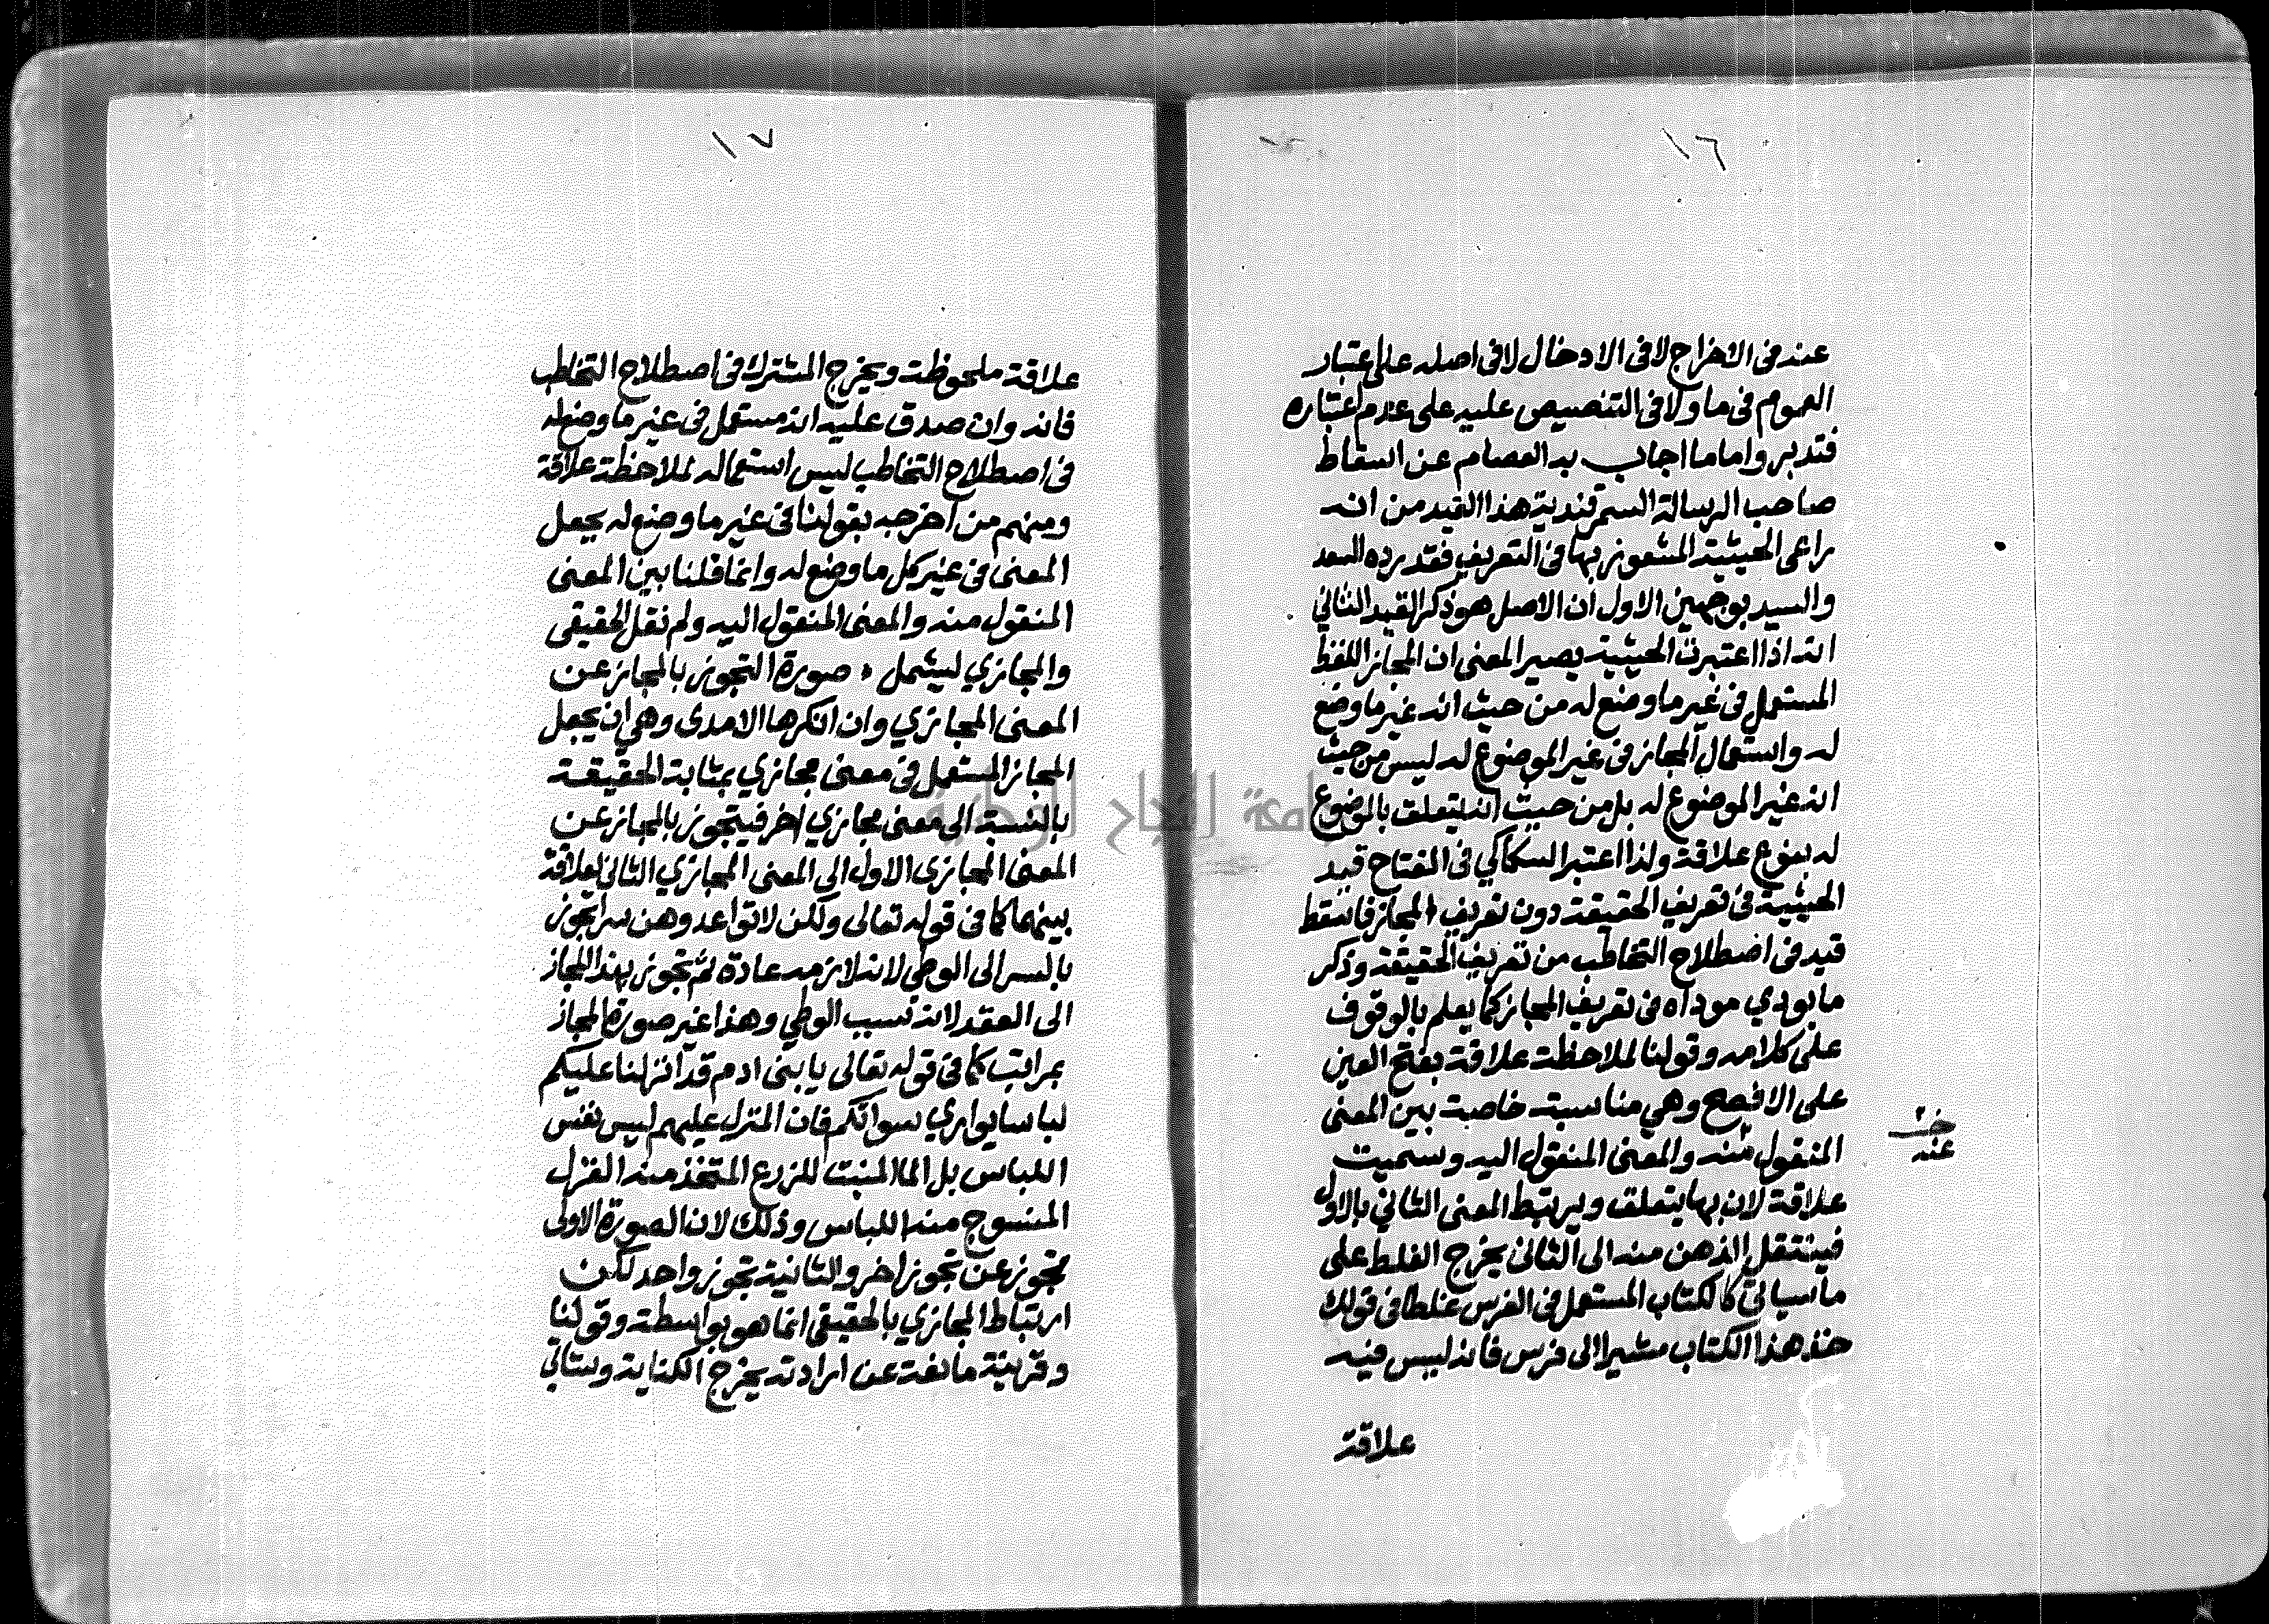 ١٦
عنه فى الاخراج لا فى الادخال لا فى اصله على اعتبار
العموم فى ما ولا فى التنصيص عليه على عدم اعتباره
فتدبر واما ما اجاب به العصام عن اسقاط
صاحب الرسالة السمرقندية هذا القيد من انه
راعى الحيثية المشعور بها فى التعريف فقد رده السعد
والسيد بوجهين الاول ان الاصل هو ذكر القيد الثاني
انه اذا اعتبرت الحيثية يصير المعنى ان المجاز اللفظ
المستعمل فى غير ما وضع له من حيث انه غير ما وضع
له واستعمال المجاز فى غير الموضوع له ليس من حيث
انه غير الموضوع له بل من حيث انه يتعلق بالموضوع
له بنوع علاقة ولذا اعتبر السكاكي فى المفتاح قيد
الحيثية فى تعريف الحقيقة دون تعريف المجاز فاسقط
قيد فى اصطلاح التخاطب من تعريف الحقيقة وذكر
ما يودي موداه فى تعريف المجاز كما يعلم بالوقوف
على كلامه وقولنا لملاحظة علاقة بفتح العين
على الافصح وهي مناسبة خاصة بين المعنى
المنقول منه والمعنى المنقول اليه وسميت
علاقة لان بها يتعلق ويرتبط المعنى الثاني بالاول
فينتقل الذهن منه الى الثانى يخرج الغلط على
ما سياتي كالكتاب المستعمل فى الفرس غلطا فى قولك
خذ هذا الكتاب مشيرا الى فرس فانه ليس فيه
علاقة
عنه
١٧
علاقة ملحوظة ويخرج المشترك فى اصطلاح التخاطب
فانه وان صدق عليه انه مستعمل فى غير ما وضع له
فى اصطلاح التخاطب ليس استعماله لملاحظة علاقة
ومنهم من اخرجه بقولنا فى غير ما وضع له بجعل
المعنى فى غير كل ما وضع له وانما قلنا بين المعنى
المنقول منه والمعنى المنقول اليه ولم نقل الحقيقى
والمجازي ليشمل صورة التجوز بالمجاز عن
المعنى المجازي وان انكرها الامدى وهي ان يجعل
المجاز المستعمل فى معنى مجازي بمثابة الحقيقة
بالنسبة الى معنى مجازي اخر فيتجوز بالمجاز عن
المعنى المجازى الاول الى المعنى المجازي الثانى لعلاقة
بينهما كما فى قوله تعالى ولكن لا تواعدوهن سرا تجوز
بالسر الى الوطي لانه لازمه عادة ثم تجوز بهذا المجاز
الى العقد لانه سبب الوطي وهذا غير صورة المجاز
بمراتب كما فى قوله تعالى يا بنى ادم قد انزلنا عليكم
لباسا يواري سواتكم فان المنزل عليهم ليس نفس
اللباس بل الما المنبت للزرع المتخذ منه الغزل
المنسوج منه اللباس وذلك لان الصورة الاولى
تجوز عن تجوز اخر والثانية تجوز واحد لكن
ارتباط المجازي بالحقيقى انما هو بواسطة وقولنا
وقرينة مانعة عن ارادته يخرج الكناية وستاتي
جامعة النجاح الوطنية